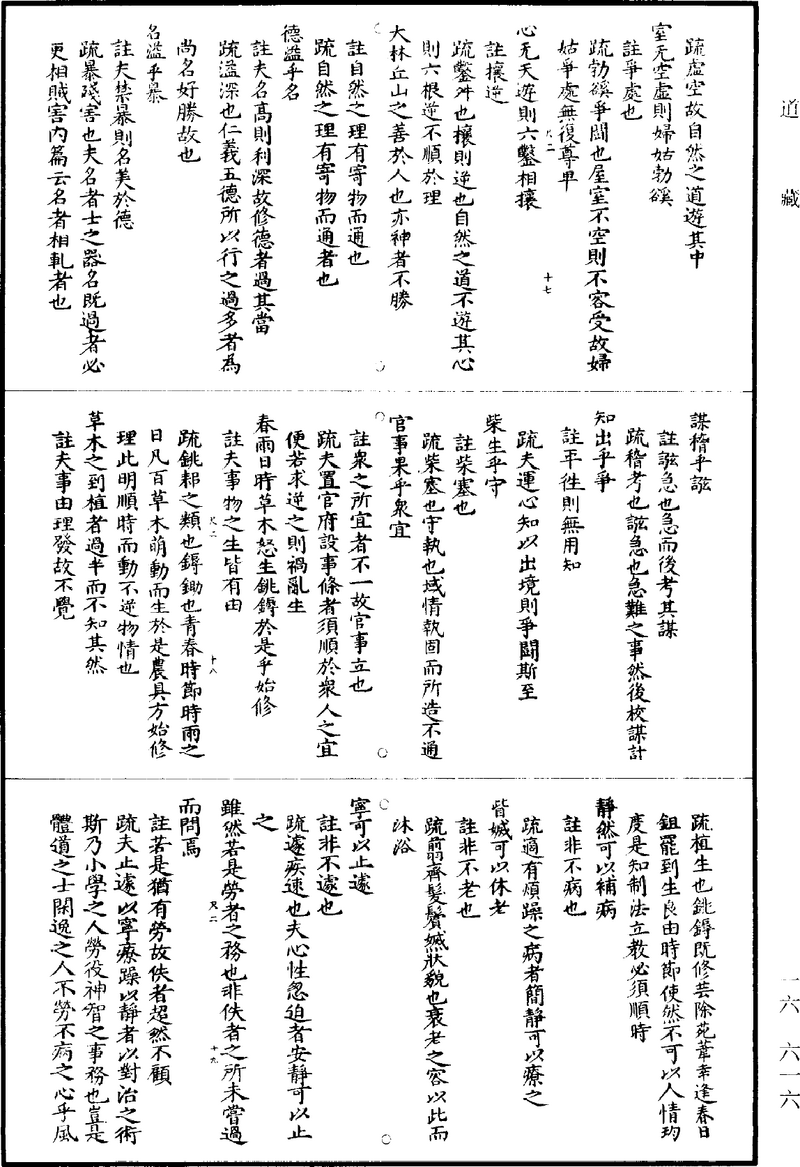 道藏
疏虛空故自然之道遊其中
室无空虛則婦姑勃豀
註爭處也
疏勃豀爭鬪也屋室不空則不容受故婦
姑爭處無復尊卑
尺二
十七
心无天遊則六鑿相攘
註攘逆
疏鑿舛也攘則逆也自然之道不遊其心
則六根逆不順於理
大林丘山之善於人也亦神者不勝
註自然之理有寄物而通也
疏自然之理有寄物而通者也
德溢乎名
註夫名高則利深故修德者過其當
疏溢深也仁義五德所以行之過多者為
尚名好勝故也
名溢乎暴
註夫禁暴則名美於德
疏暴殘害也夫名者士之器名既過者必
更相賊害內篇云名者相軋者也
謀稽乎誸
註誸急也急而後考其謀
疏稽考也誸急也急難之事然後校謀計
知出乎爭
註平徃則無用知
疏夫運心知以出境則爭鬪斯至
柴生乎守
註柴塞也
疏柴塞也守執也域情執固而所造不通
官事果乎衆宜
註衆之所宜者不一故官事立也
疏夫置官府設事條者須順於衆人之宜
便若求逆之則禍亂生
春雨日時草木怒生銚鎒於是乎始修
註夫事物之生皆有由
疏銚耜之類也鎒鋤也青春時節時雨之
尺二
十八
日凡百草木萌動而生於是農具方始修
理此明順時而動不逆物情也
草木之到植者過半而不知其然
註夫事由理發故不覺
疏植生也銚鎒既修芸除荒葦幸逢春日
鉏罷到生良由時節使然不可以人情均
度是知制法立教必須順時
靜然可以補病
註非不病也
疏適有煩躁之病者簡靜可以療之
眥搣可以休老
註非不老也
疏翦齊髮鬢搣狀貌也衰老之容以此而
沐浴
寧可以止遽
註非不遽也
疏遽疾速也夫心性忽迫者安靜可以止
之
雖然若是勞者之務也非佚者之所未嘗過
尺二
十九
而問焉
註若是猶有勞故佚者超然不顧
疏夫止遽以寧療躁以靜者以對治之術
斯乃小學之人勞役神智之事務也豈是
體道之士閑逸之人不勞不病之心乎風
一六 六一六